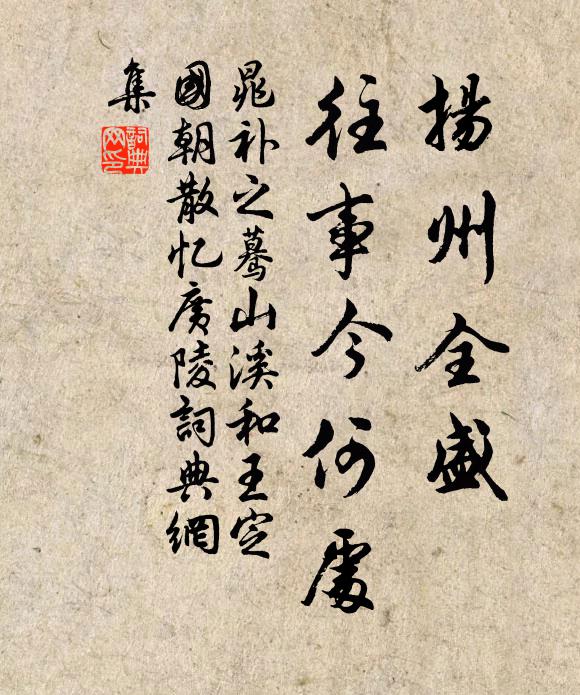 揚州全盛
往事今何處
晁补之蓦山溪和王定
國朝散忆廣陵詞典網
集
詞典网印